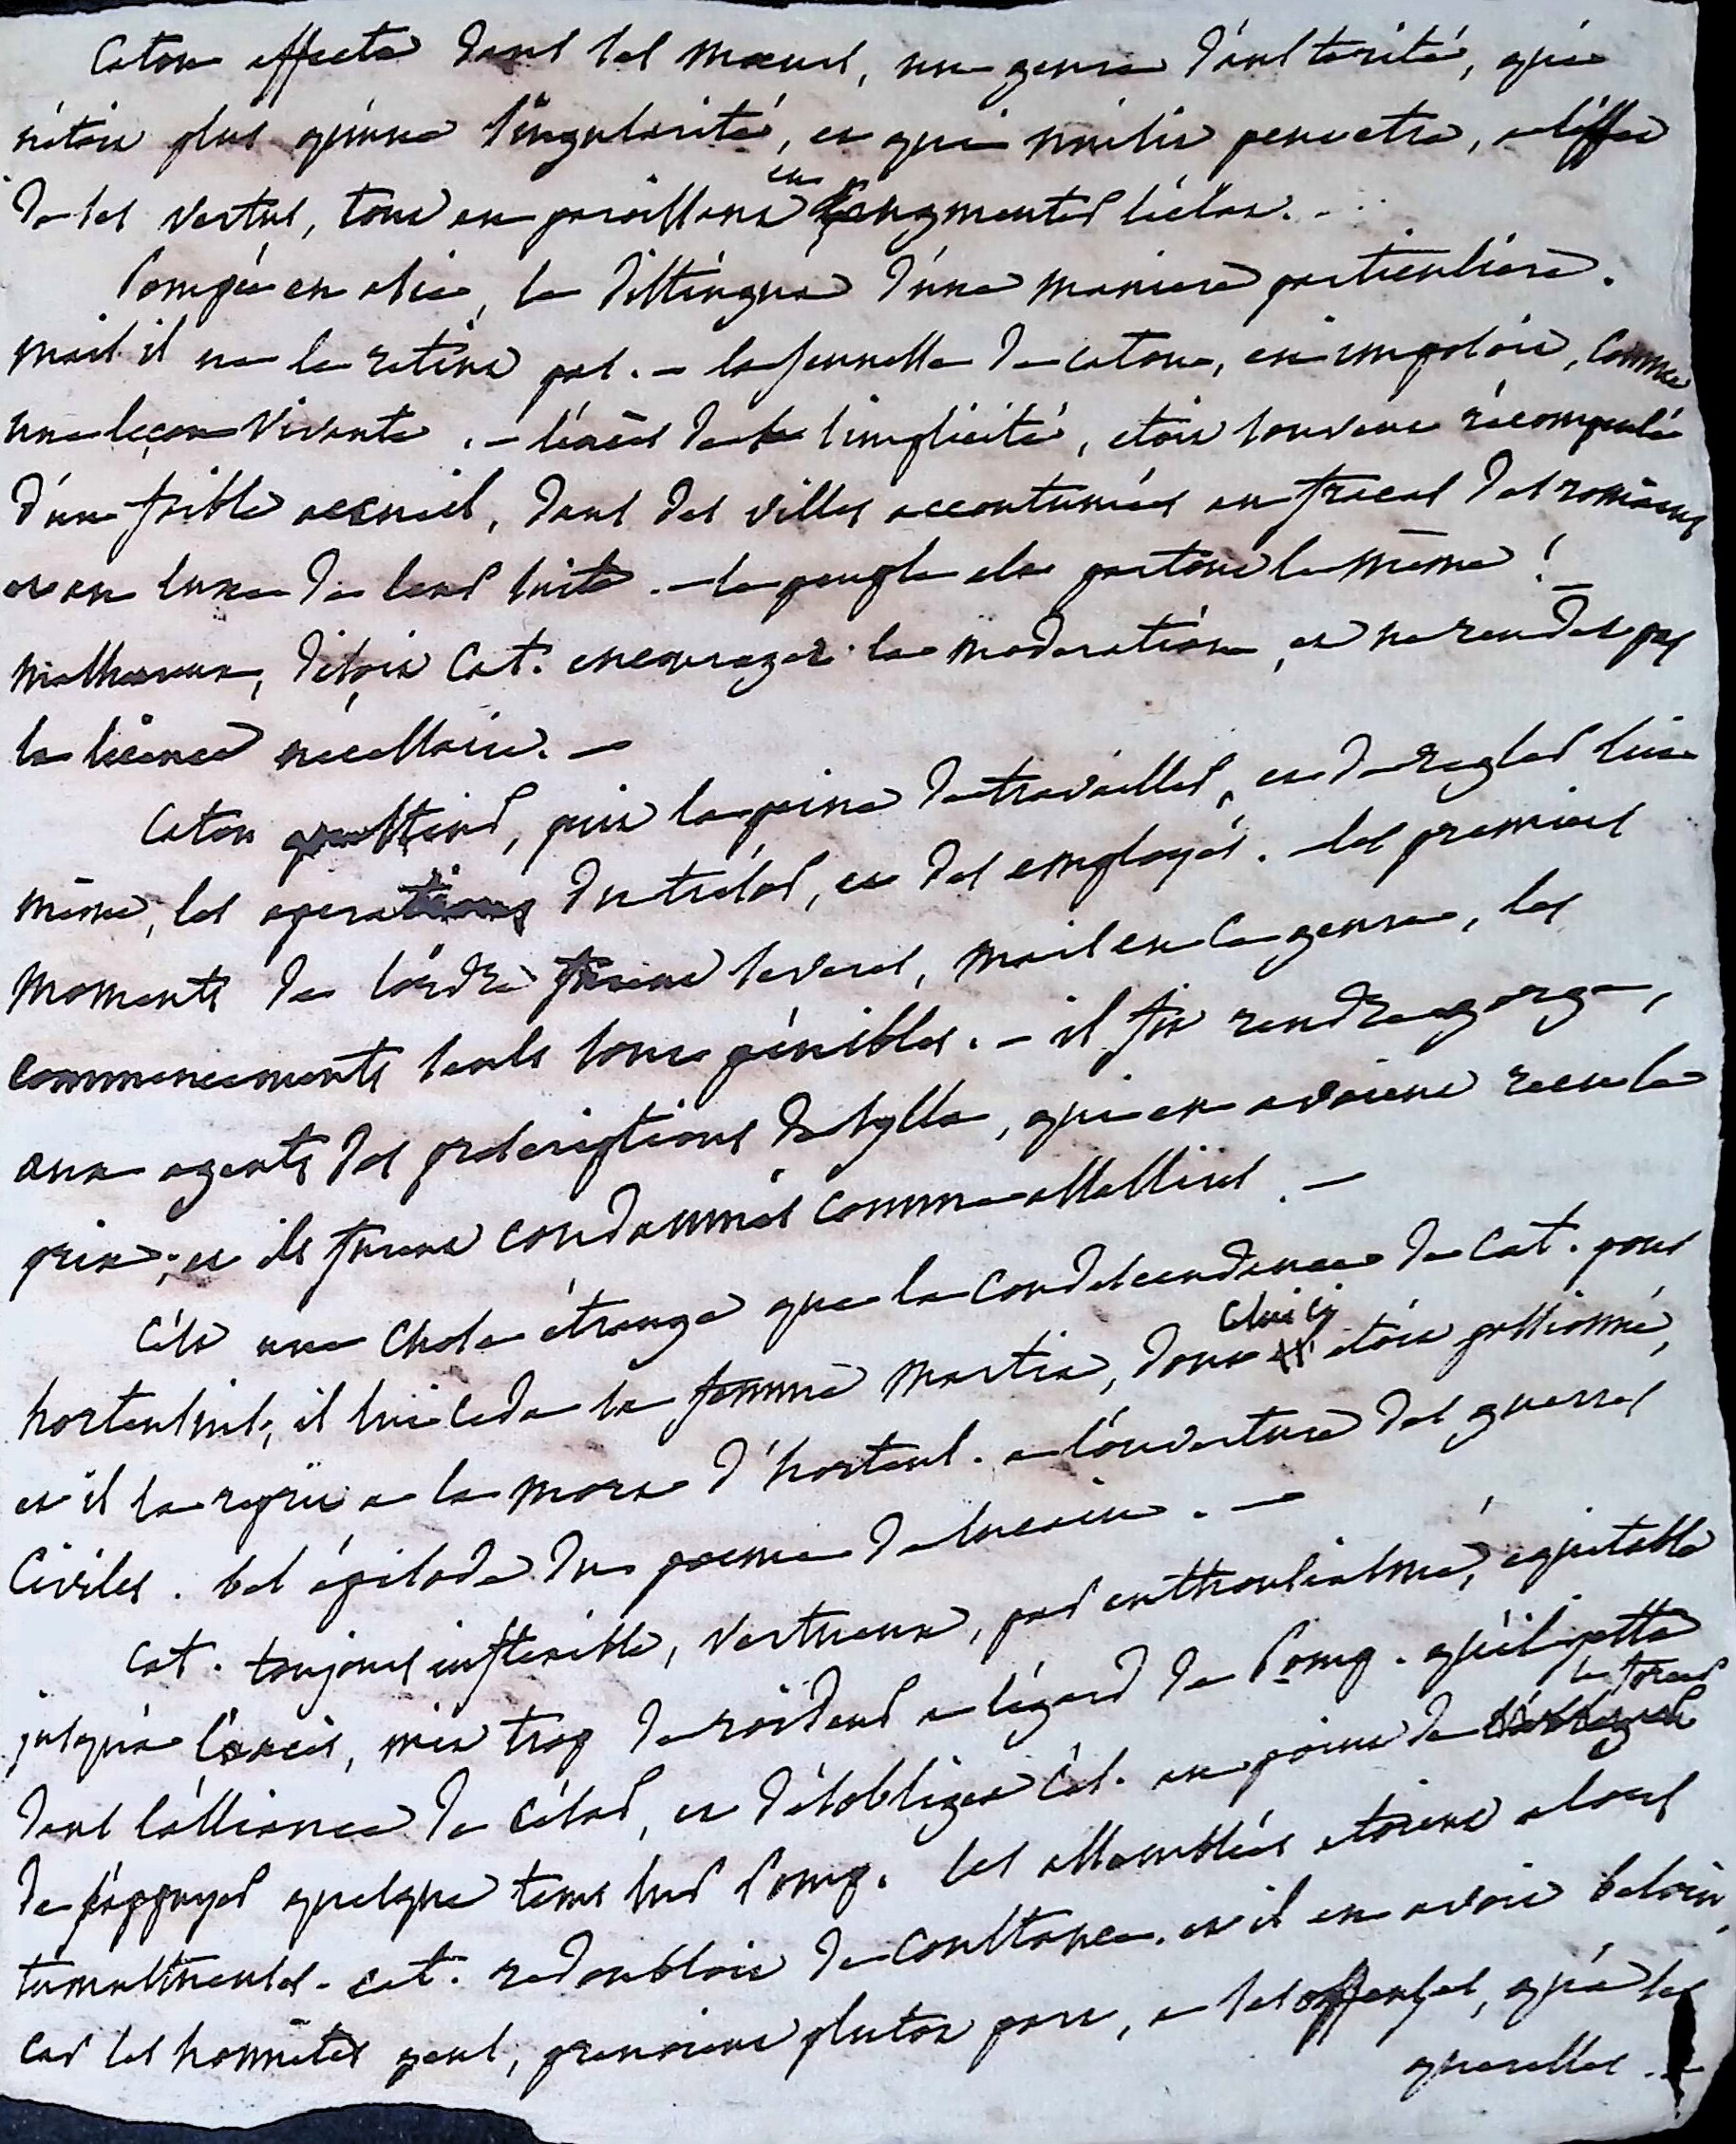 Caton affecta dans ses mœurs, un genre d'austerité, qui
n'étoit plus qu'une singularité, et qui nuisit peutetre, a l'effet
de ses vertus, tout en paroissant en augmenter l'éclat. . .
Pompée en asie, le distingua d'une maniere particuliere.
mais il ne le retint pas. – la personne de caton, en imposoit, comme
une leçon vivante. – l'excès de sa simplicité, etoit souvent récompensé
d'un faible accueil, dans des villes accoutumées au fracas des romains
et au luxe de leur suite. – le peuple est partout le même ! –
malheureux, disoit Cat. encouragez la moderation, et ne rendez pas
la licence nécessaire. –
Caton questeur, prit la peine de travailler, et de regler lui
même, les operations du trésor, et des employés. – les premiers
moments de l'ordre furent severes, mais en ce genre, les
commencements seuls sont pénibles. – il fit rendre gorge,
aux agents des proscriptions de Sylla, qui en avoient recu le
prix; et ils furent condamnés comme assassins. –
C'est une chose étrange que la condescendance de Cat. pour
hortensius; il lui ceda sa femme Martia, dont celui ci etoit passionné,
et il la reprit a la mort d'hortens. a l'ouverture des guerres
Civiles. bel épisode du poeme de lucain. –
Cat. toujours inflexible, vertueux, par enthousiasme, equitable
jusqu'a l'excès, mit trop de roideur a l'égard de Pomp. qu'il jetta
dans l'alliance de César, et désobligea Cic. au point de le forcer
de s'appuyer quelque tems sur Pomp. les assemblées etoient alors
tumultueuses. cat. redoubloit de constance. et il en avoit besoin,
car les honnêtes gens, prenoient plutot part, a ses offenses, qu'a ses
querelles. –